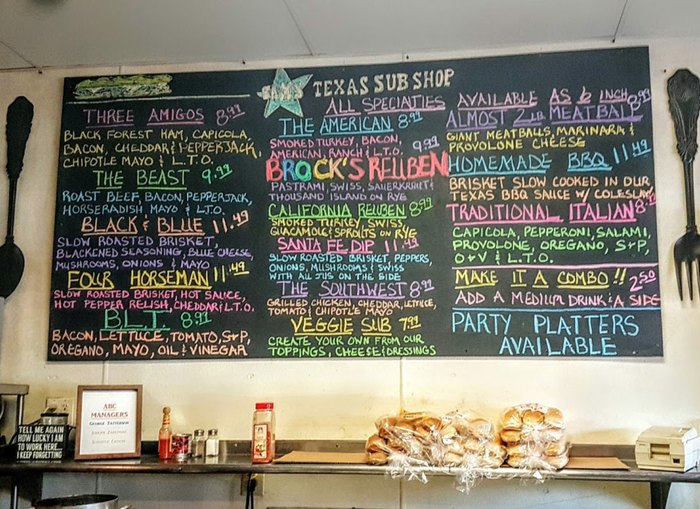 THREE AMIGOS 8.99
BLACK FOREST HAM, CAPICOLA,
BACON, CHEDDAR & PEPPERJACK,
CHIPOTLE MAYO & L.T.O.
THE BEAST 9.99
ROAST BEEF, BACON, PEPPERJACK,
HORSERADISH MAYO & L.T.O.
BLACK & BLUE 11.49
SLOW ROASTED BRISKET,
BLACKENED SEASONING, BLUE CHEESE,
MUSHROOMS, ONIONS & MAYO
FOUR HORSEMAN 11.49
SLOW ROASTED BRISKET, HOT SAUCE,
HOT PEPPER RELISH, CHEDDAR & L.T.O.
B.L.T. 8.99
BACON, LETTUCE, TOMATO, S+P,
OREGANO, MAYO, OIL & VINEGAR
SAM'S TEXAS SUB SHOP
ALL SPECIALTIES
THE AMERICAN 8.99
SMOKED TURKEY, BACON,
AMERICAN, RANCH & L.T.O.
BROCK'S REUBEN 9.99
PASTRAMI, SWISS, SAUERKRAUT &
THOUSAND ISLAND ON RYE
CALIFORNIA REUBEN 8.99
SMOKED TURKEY, SWISS,
GUACAMOLE & SPROUTS ON RYE
SANTA FE DIP 11.49
SLOW ROASTED BRISKET, PEPPERS,
ONIONS, MUSHROOMS & SWISS
WITH AU JUS ON THE SIDE
THE SOUTHWEST 8.99
GRILLED CHICKEN, CHEDDAR, LETTUCE,
TOMATO & CHIPOTLE MAYO
VEGGIE SUB 7.99
CREATE YOUR OWN FROM OUR
TOPPINGS, CHEESE & DRESSINGS
AVAILABLE AS 6 INCH
ALMOST 2 LB MEATBALL 8.99
GIANT MEATBALLS, MARINARA &
PROVOLONE CHEESE
HOMEMADE BBQ 11.49
BRISKET SLOW COOKED IN OUR
TEXAS BBQ SAUCE W/ COLESLAW
TRADITIONAL ITALIAN 8.99
CAPICOLA, PEPPERONI, SALAMI,
PROVOLONE, OREGANO, S+P,
O+V & L.T.O.
MAKE IT A COMBO!! 2.50
ADD A MEDIUM DRINK & A SIDE
PARTY PLATTERS
AVAILABLE
TELL ME AGAIN
HOW LUCKY I AM
TO WORK HERE...
I KEEP FORGETTING
ABC
MANAGERS